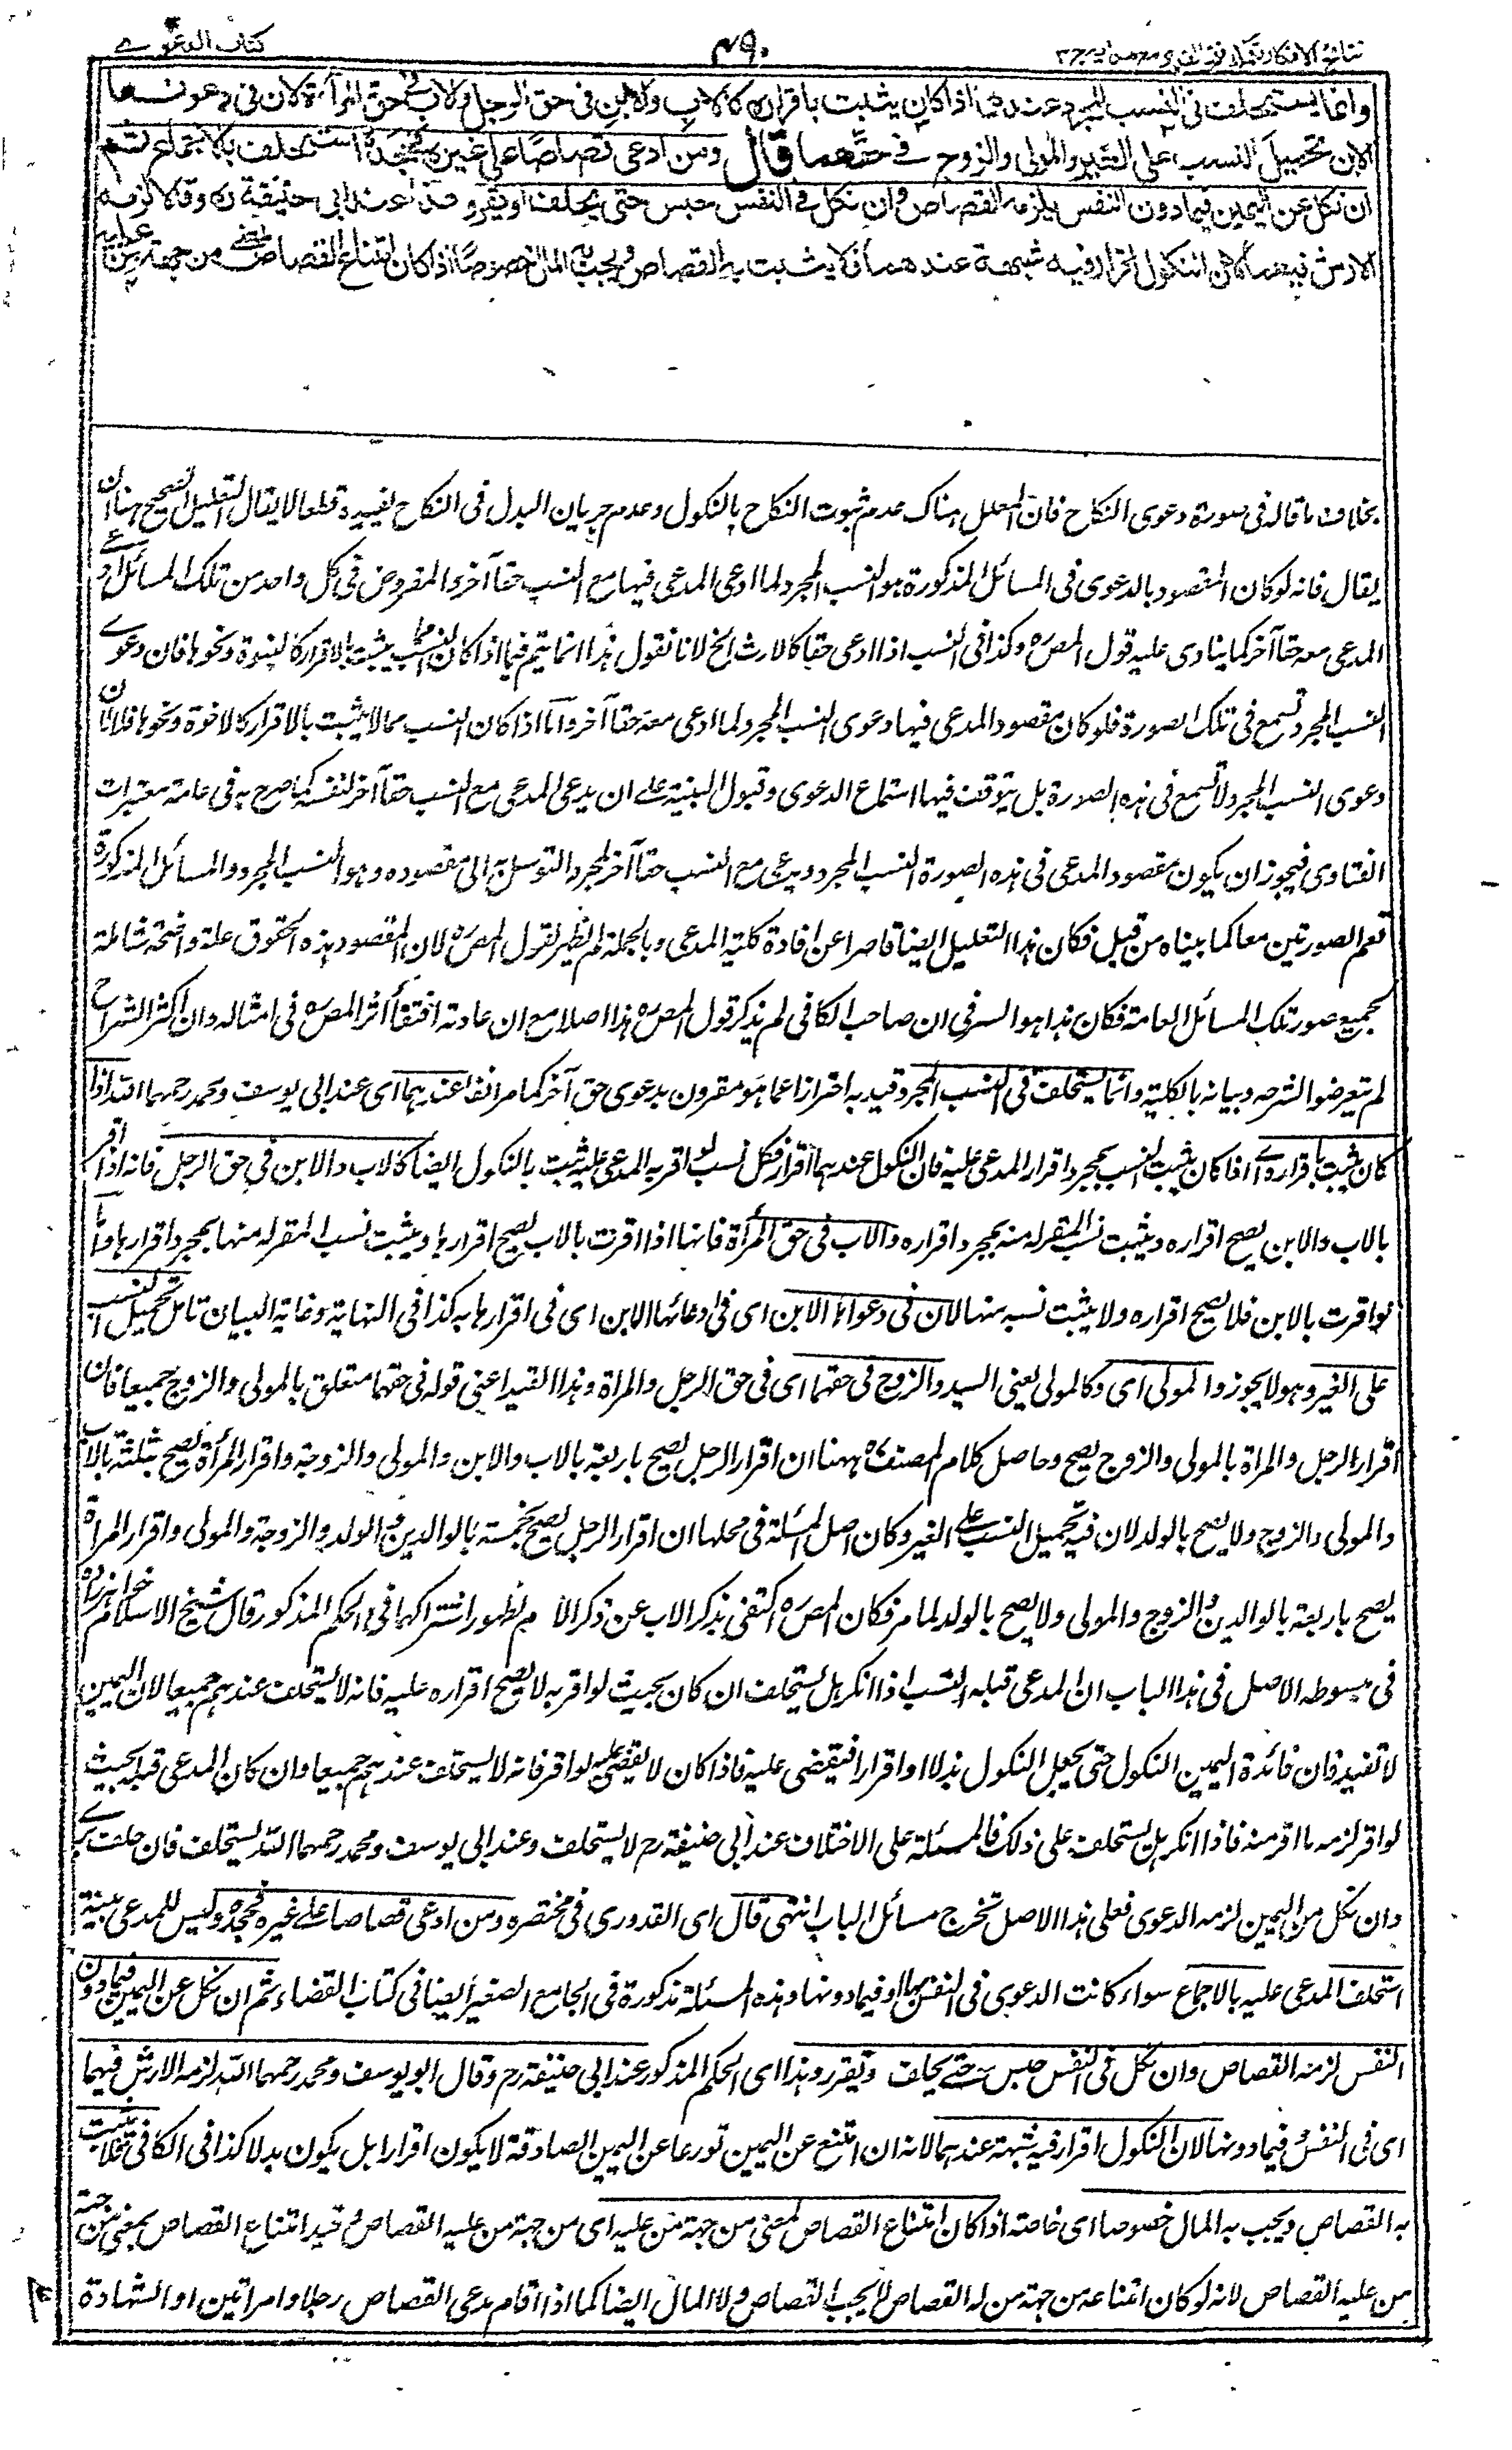 كتاب الدعوى ٤٩٠ نتائج الافكار تكملة فتح القدير مع هداية ج ٣
وانما يستحلف فى النسب المجرد عندهما اذا كان يثبت باقراره كالاب والابن فى حق الرجل والاب فى حق المرأة لان فى دعوٮها
الابن تحميل النسب على الغير والمولى والزوج فى حقهما قال ومن ادعى قصاصا على غيره فجحده استحلف بالاجماع ثم
ان نكل عن اليمين فيما دون النفس يلزمه القصاص وان نكل فى النفس حبس حتى يحلف او يقر وهذا عند ابى حنيفة رح وقالا لزمه
الارش فيهما لان النكول اقرار فيه شبهة عندهما فلا يثبت به القصاص ويجب به المال خصوصا اذا كان امتناع القصاص لمعنى من جهة من عليه
بخلاف ما قاله فى صورة دعوى النكاح فان المعلل هناك عدم ثبوت النكاح بالنكول وعدم جريان البدل فى النكاح يفيده قطعا لا يقال التعليل الصحيح هنا ان
يقال فانه لو كان المقصود بالدعوى فى المسائل المذكورة هو النسب المجرد لما ادعى المدعى فيها مع النسب حقا آخر والمفروض فى كل واحد من تلك المسائل ادعى
المدعى معه حقا آخر كما ينادى عليه قول المصره وكذا فى النسب اذا ادعى حقا كالارث الخ لانا نقول هذا انما يتم فيما اذا كان النسب مما يثبت بالاقرار كالبنوة ونحوها فان دعوى
النسب المجرد تسمع فى تلك الصورة فلو كان مقصود المدعى فيها دعوى النسب المجرد لما ادعى معه حقا آخر واما اذا كان النسب مما لا يثبت بالاقرار كالاخوة ونحوها فلا لان
دعوى النسب المجرد لا تسمع فى هذه الصورة بل يتوقف فيها استماع الدعوى وقبول البينة على ان يدعى المدعى مع النسب حقا آخر لنفسه كما صرح به فى عامة معتبرات
الفتاوى فيجوز ان يكون مقصود المدعى فى هذه الصورة النسب المجرد ويدعى مع النسب حقا آخر لمجرد التوسل به الى مقصوده وهو النسب المجرد والمسائل المذكورة
تعم الصورتين معا كما بيناه من قبل فكان هذا التعليل ايضا قاصرا عن افادة كلية المدعى وبالجملة لم يظهر لقول المصره لان المقصود هذه الحقوق علة واضحة شاملة
لجميع صور تلك المسائل العامة فكان هذا هو السر فى ان صاحب الكافى لم يذكر قول المصره هذا اصلا مع ان عادته اقتفاء اثر المصره فى امثاله وان اكثر الشراح
لم يتعرضوا لشرحه وبيانه بالكلية وانما يستحلف فى النسب المجرد قيد به احترازا عما هو مقرون بدعوى حق آخر كما مر آنفا عندهما اى عند ابى يوسف ومحمد رحمهما الله اذا
كان يثبت باقراره اى اذا كان يثبت النسب بمجرد اقرار المدعى عليه فان النكول عندهما اقرار فكل نسب لو اقر به المدعى عليه ثبت بالنكول ايضا كالاب والابن فى حق الرجل فانه اذا اقر
بالاب والابن يصح اقراره ويثبت نسب المقر له منه بمجرد اقراره والاب فى حق المرأة فانها اذا اقرت بالاب يصح اقرارها ويثبت نسب المقر له منها بمجرد اقرارها واما
لو اقرت بالابن فلا يصح اقراره ولا يثبت نسبه منها لان فى دعواها الابن اى فى ادعائها الابن اى فى اقرارها به كذا فى النهاية وغاية البيان تامل تحميل النسب
على الغير وهو لا يجوز والمولى اى وكالمولى يعنى السيد والزوج فى حقهما اى فى حق الرجل والمرأة وهذا القيد اعنى قوله فى حقهما متعلق بالمولى والزوج جميعا فان
اقرار الرجل والمرأة بالمولى والزوج يصح وحاصل كلام المصنف ره ههنا ان اقرار الرجل يصح باربعة بالاب والابن والمولى والزوجة واقرار المرأة يصح بثلثة بالاب
والمولى والزوج ولا يصح بالولد لان فيه تحميل النسب على الغير وكان اصل المسئلة فى محلها ان اقرار الرجل يصح بخمسة بالوالدين والولد والزوجة والمولى واقرار المرأة
يصح باربعة بالوالدين والزوج والمولى ولا يصح بالولد لما مر فكان المصره اكتفى بذكر الاب عن ذكر الام لظهور اشتراكهما فى الحكم المذكور قال شيخ الاسلام خواهر زاده
فى مبسوطه الاصل فى هذا الباب ان المدعى قبله النسب اذا انكر هل يستحلف ان كان بحيث لو اقر به لا يصح اقراره عليه فانه لا يستحلف عندهم جميعا لان اليمين
لا تفيد فان فائدة اليمين النكول حتى يجعل النكول بدلا او اقرارا فيقضى عليه فاذا كان لا يقضى عليه لو اقر فانه لا يستحلف عندهم جميعا وان كان المدعى قبله بحيث
لو اقر لزمه ما اقر منه فاذا انكر هل يستحلف على ذلك فالمسئلة على الاختلاف عند ابى حنيفة رح لا يستحلف وعند ابى يوسف ومحمد رحمهما الله يستحلف فان حلف برئ
وان نكل من اليمين لزمه الدعوى فعلى هذا الاصل تخرج مسائل الباب انتهى قال اى القدورى فى مختصره ومن ادعى قصاصا على غيره فجحده وليس للمدعى بينة
استحلف المدعى عليه بالاجماع سواء كانت الدعوى فى النفس او فيما دونها وهذه المسئلة مذكورة فى الجامع الصغير ايضا فى كتاب القضاء ثم ان نكل عن اليمين فيما دون
النفس لزمه القصاص وان نكل فى النفس حبس حتى يحلف ويقر وهذا اى الحكم المذكور عند ابى حنيفة رح وقال ابو يوسف ومحمد رحمهما الله لزمه الارش فيهما
اى فى النفس وفيما دونها لان النكول اقرار فيه شبهة عندهما لانه ان امتنع عن اليمين تورعا عن اليمين الصادقة لا يكون اقرارا بل يكون بدلا كذا فى الكافى فلا يثبت
به القصاص ويجب به المال خصوصا اى خاصة اذا كان امتناع القصاص لمعنى من جهة من عليه اى من جهة من عليه القصاص وقيد امتناع القصاص بمعنى من جهة
من عليه القصاص لانه لو كان امتناعه من جهة من له القصاص لا يجب القصاص ولا المال ايضا كما اذا اقام مدعى القصاص رجلا وامرأتين او الشهادة